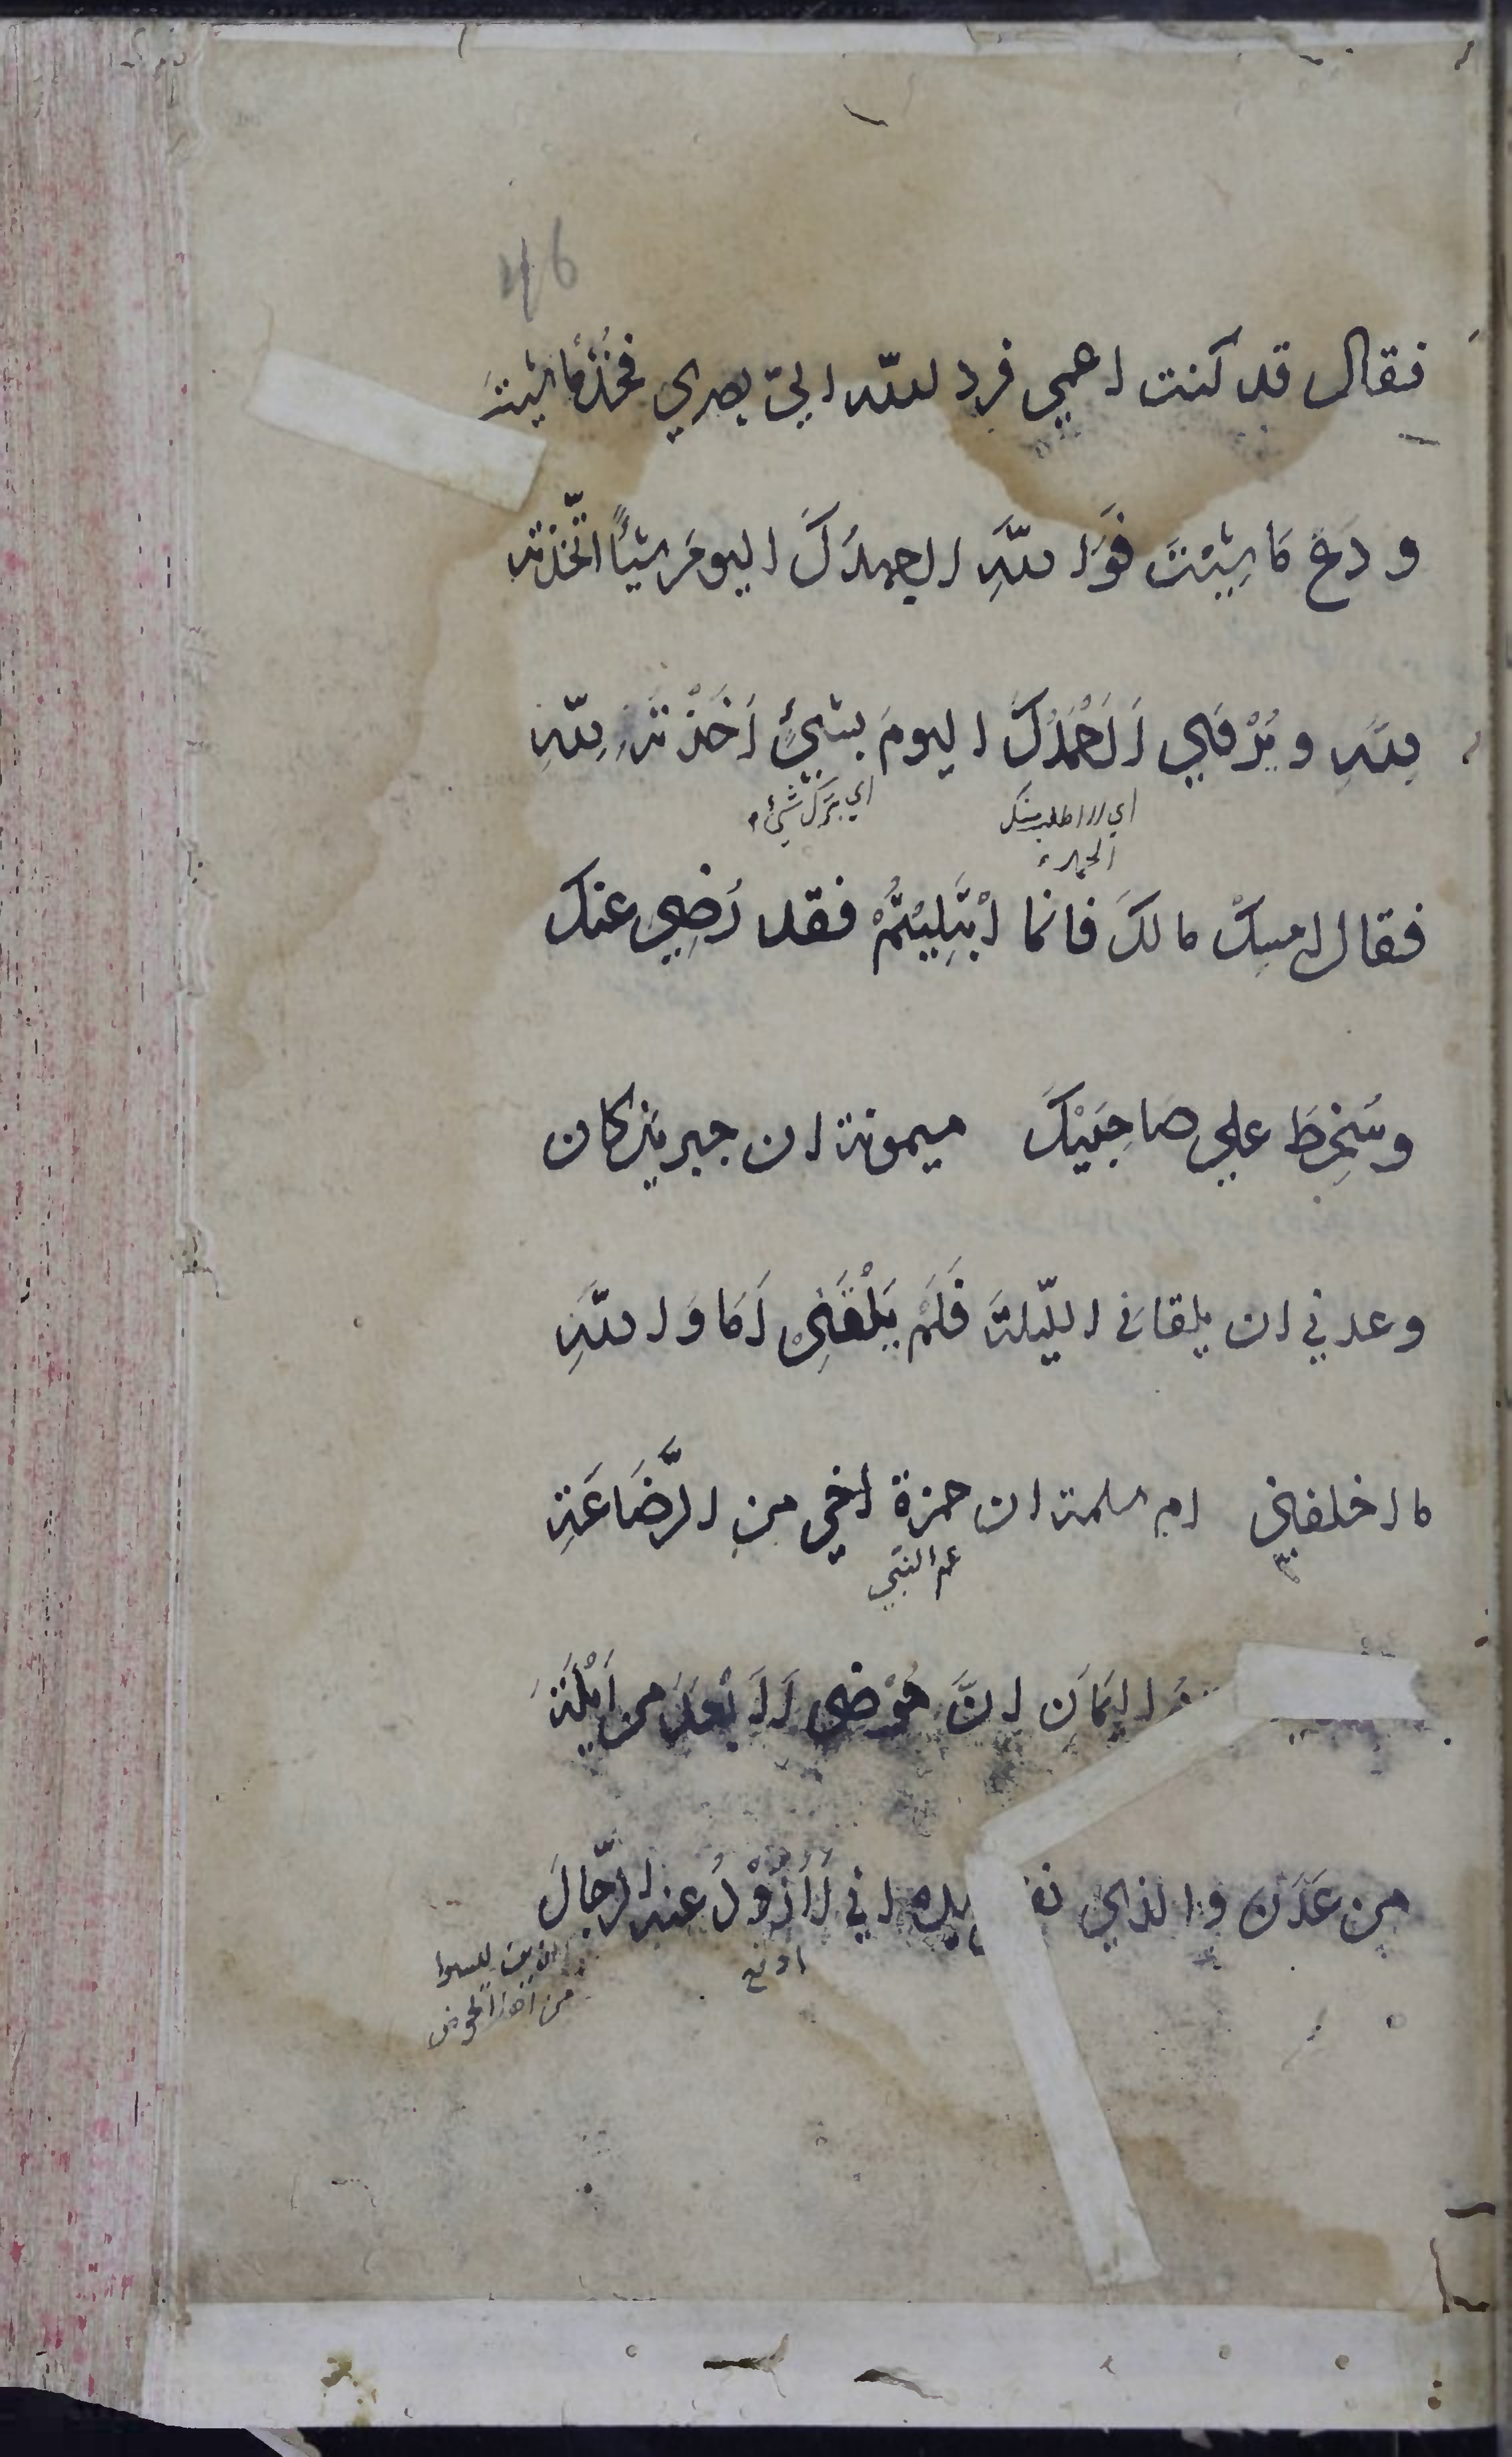 46
فقال قد كنت اعمي فرد لله اليّ بصري فخُذْ ما شيتَ
و دَعْ مَا شِيْتَ فَوَ اللهِ لا اجهدُكَ اليومَ شيأً اتّخذته
لِلّهِ و يُرْوَي لَا اَحْمَدُكَ اليومَ بشيٍْ اَخَذْتَهُ لِلّهِ
اي لا اطلب منك
الحمد
اي بترك شيٍْ
فقال امسِكْ مالكَ فانما ابْتُلِيْتُمْ فقد رَضِي عنك
وسَخِطَ علي صَاحِبَيْكَ ميمونة ان جبريل كان
وعدني ان يلقاني الليّلةَ فَلَمْ يَلْقَنِيْ اَمَا وَ اللهِ
ما اخلفني ام سلمة ان حمزة اخي من الرَّضَاعَةِ
عم النبي
اليَمَان انَّ حَوْضي لَاَبْعَدَ من اَيْلَةَ
من عَدَن والذي بيده اني لَاَذُوْدُ عنه الرّجالَ
ادفع
من هذا الحوض